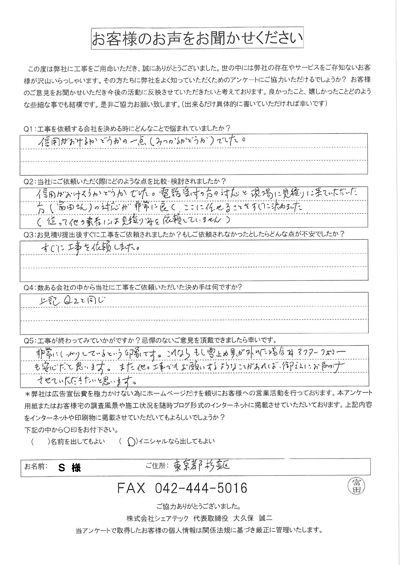 お客様のお声をお聞かせください
この度は弊社に工事をご用命いただき、誠にありがとうございました。世の中には弊社の存在やサービスをご存知ないお客
様が沢山いらっしゃいます。その方たちに弊社をよく知っていただくためのアンケートにご協力いただけるでしょうか? お客様
のご意見をお聞かせいただき今後の活動に反映させていただきたいと考えております。良かったこと、嬉しかったことどのよう
な些細な事でも結構です。是非ご協力お願い致します。(出来るだけ具体的に書いていただければ幸いです)
Q1:工事を依頼する会社を決める時にどんなことで悩まれていましたか?
信用がおけるかどうかの一点(みつかるかどうか)でした。
Q2:当社にご依頼いただく際にどのような点を比較・検討されましたか?
信用がおけるかどうかでした。電話当初の方の対応と現場に見積りに来ていただいた
方(富田さん)の対応が非常に良く、ここに任せることをすぐに決めました
(従って他の業者には見積り等を依頼していません)
Q3:お見積り提出後すぐに工事をご依頼されましたか?もしご依頼されなかったとしたらどんな点が不安でしたか?
すぐに工事を依頼しました。
Q4:数ある会社の中から当社に工事をご依頼いただいた決め手は何ですか?
上記Q2と同じ
Q5:工事が終わってみていかがですか?忌憚のないご意見を頂戴できましたら幸いです。
非常にしっかりしているという印象です。
も安心だと思います。また他の工事でもお願いするようなことがあれば、御社にお声掛け
させていただきたいと思います。
*弊社は広告宣伝費を極力かけない為にホームページだけを頼りにお客様への営業活動を行っております。本アンケート
用紙またはお客様宅の調査風景や施工状況を随時ブログ形式のインターネットに掲載させていただいております。上記内容
をインターネットや印刷物に掲載させていただいてもよろしいでしょうか?
下記の中から〇印をお付下さい。
( )名前を出してもよい ( 〇 )イニシャルなら出してもよい
お名前: S 様 ご住所: 東京都杉並区
FAX 042-444-5016
富田
ご協力ありがとうございました。
株式会社シェアテック 代表取締役 大久保 誠二
当アンケートで取得したお客様の個人情報は関係法規に基づき厳正に管理いたします。